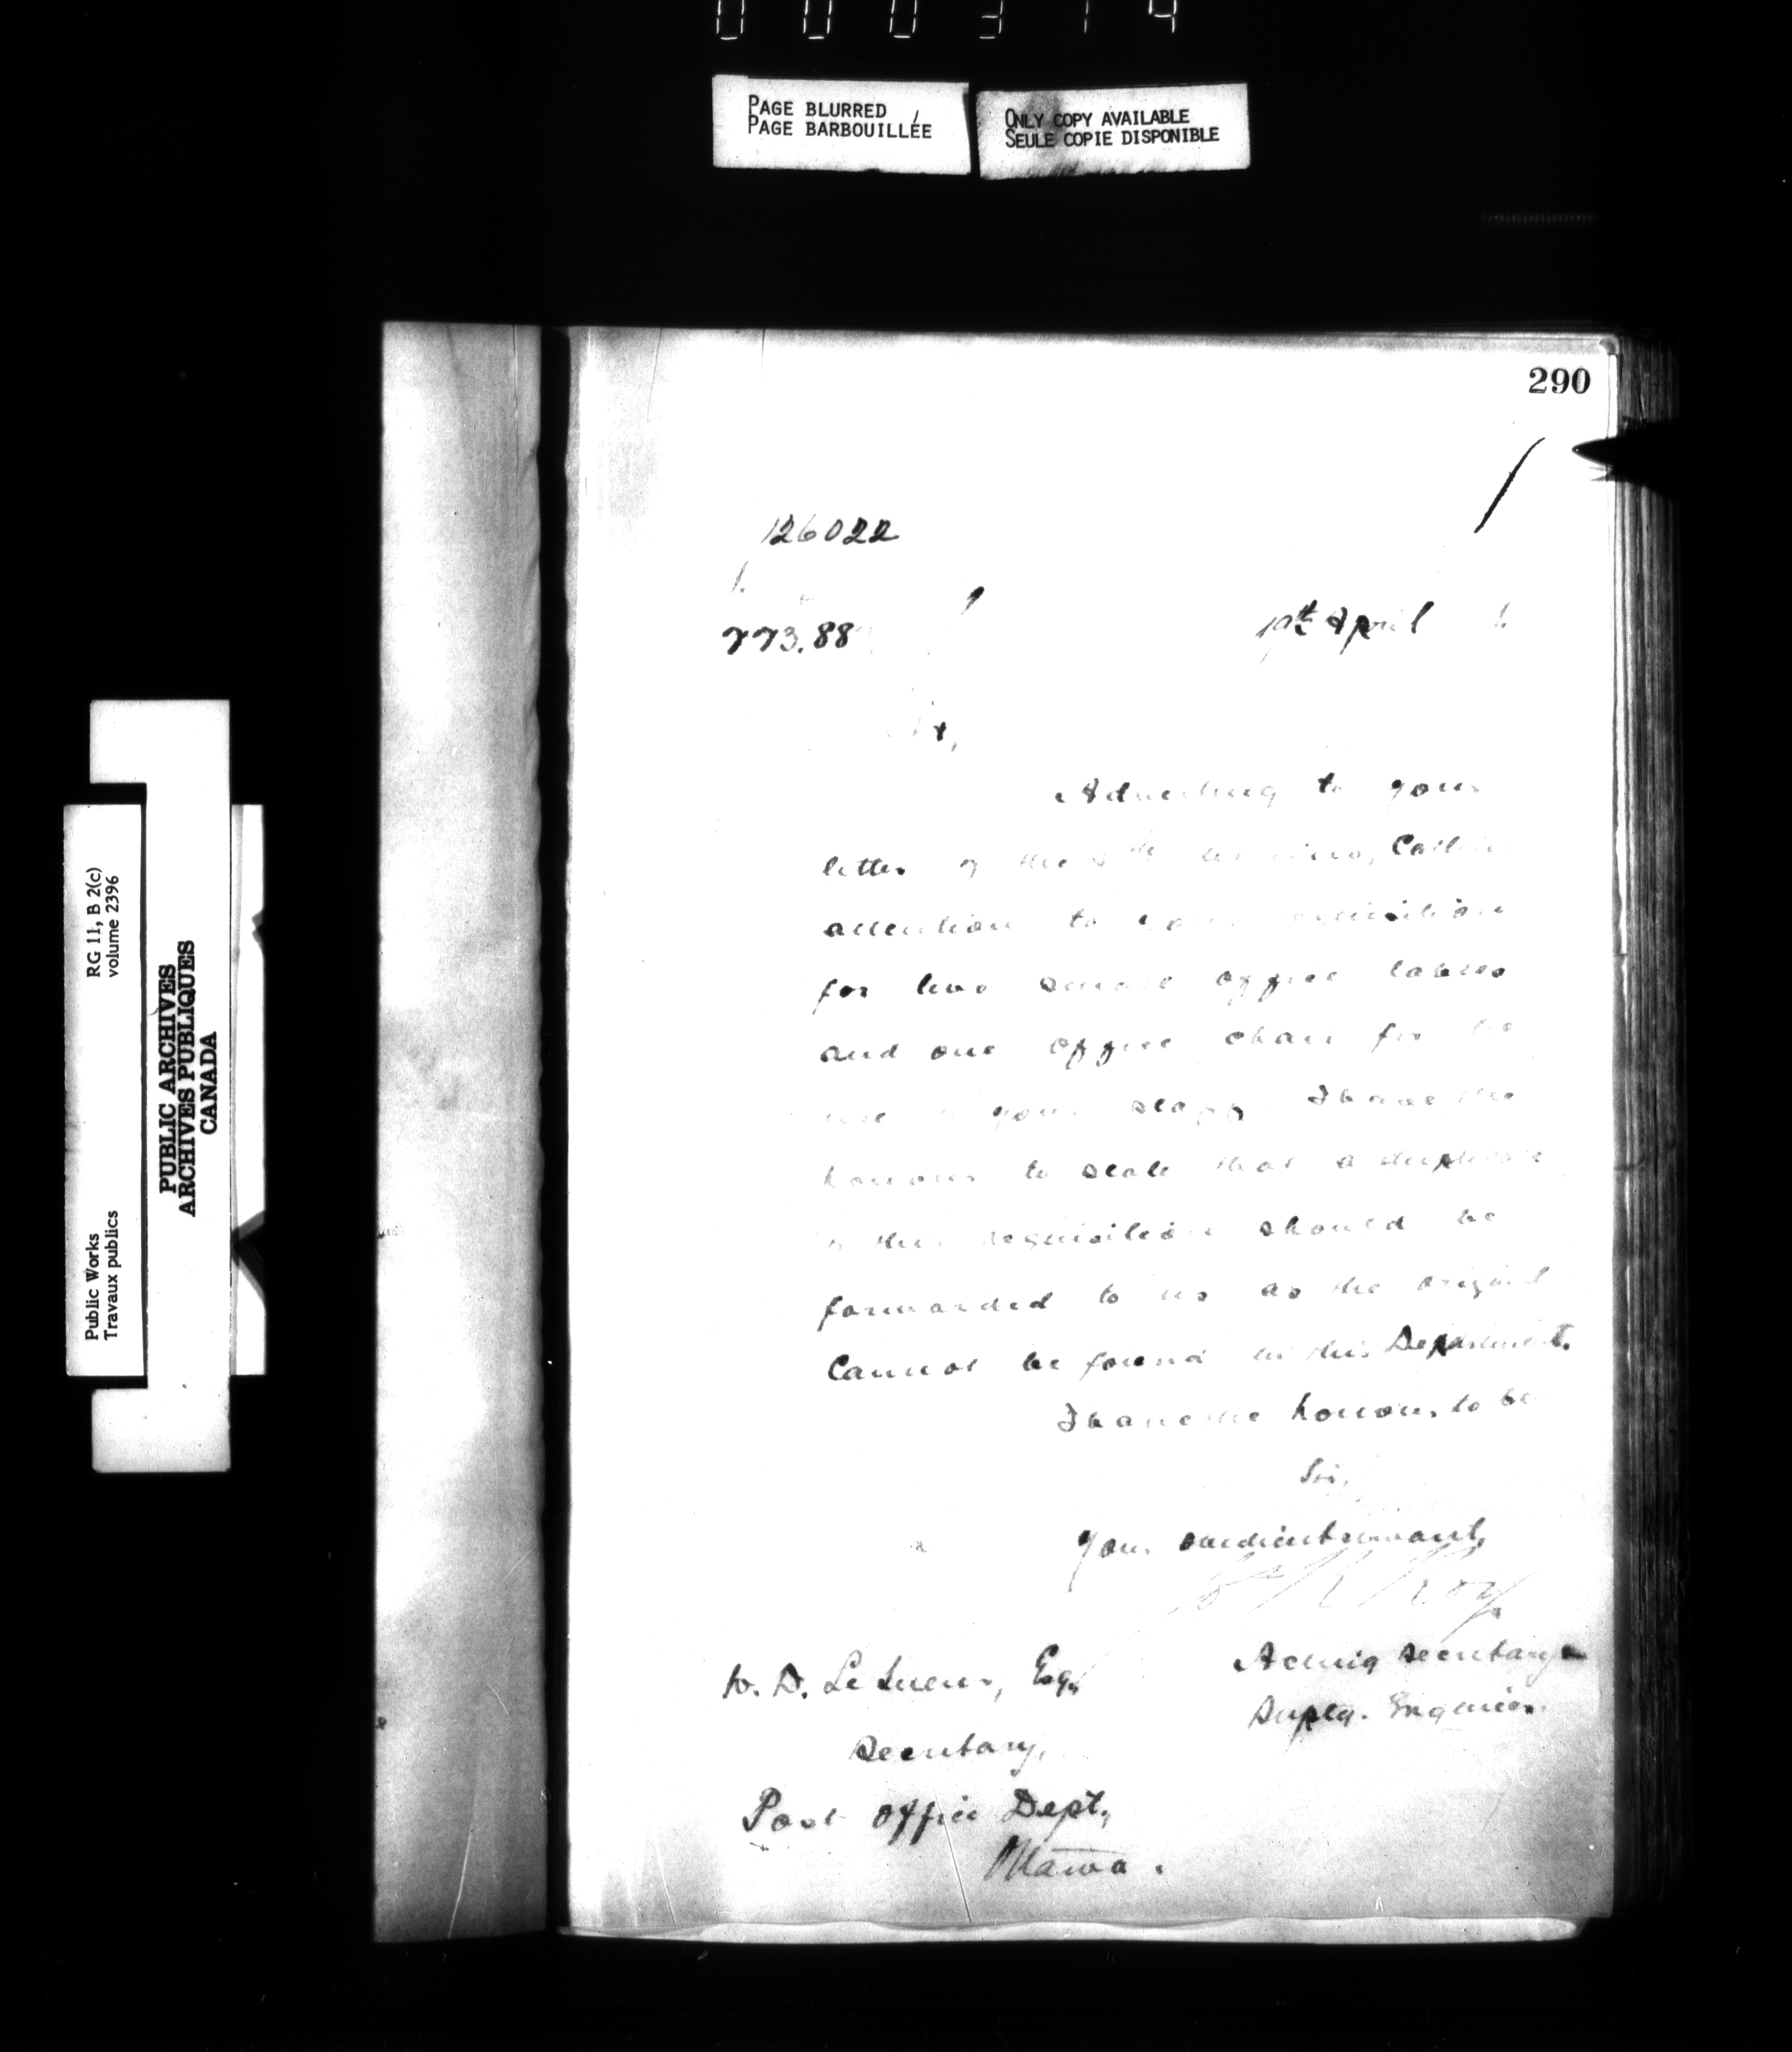 000314
PAGE BLURRED
PAGE BARBOUILLÉE
ONLY COPY AVAILABLE
SEULE COPIE DISPONIBLE
290
126022
773.88
April
Sir,
Adverting to your
letter of the instant, Calling
attention to your requisition
for two small office tables
and one office chair for the
use of your staff. I have the
honour to state that a duplicate
of this requisition should be
forwarded to us as the original
Cannot be found in this Department.
I have the honour to be
Sir,
Your obedient servant,
Roy
Acting Secretary
W. D. Le Sueur, Esq.
Secretary,
Post Office Dept.,
Ottawa.
Public Works
Travaux publics
RG 11, B 2(c)
volume 2396
PUBLIC ARCHIVES
ARCHIVES PUBLIQUES
CANADA